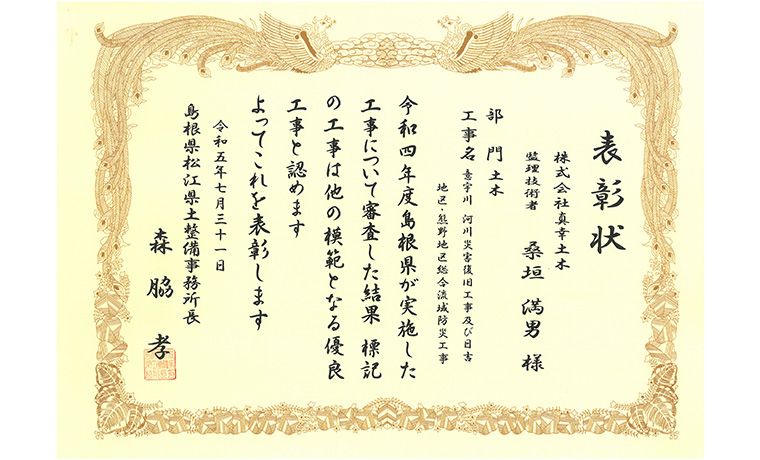 表彰状
株式会社真幸土木
監理技術者 桑垣満男様
部門 土木
工事名 意宇川 河川災害復旧工事及び日吉
地区・熊野地区総合流域防災工事
令和四年度島根県が実施した
工事について審査した結果 標記
の工事は他の模範となる優良
工事と認めます
よってこれを表彰します
令和五年七月三十一日
島根県松江県土整備事務所長
森脇孝